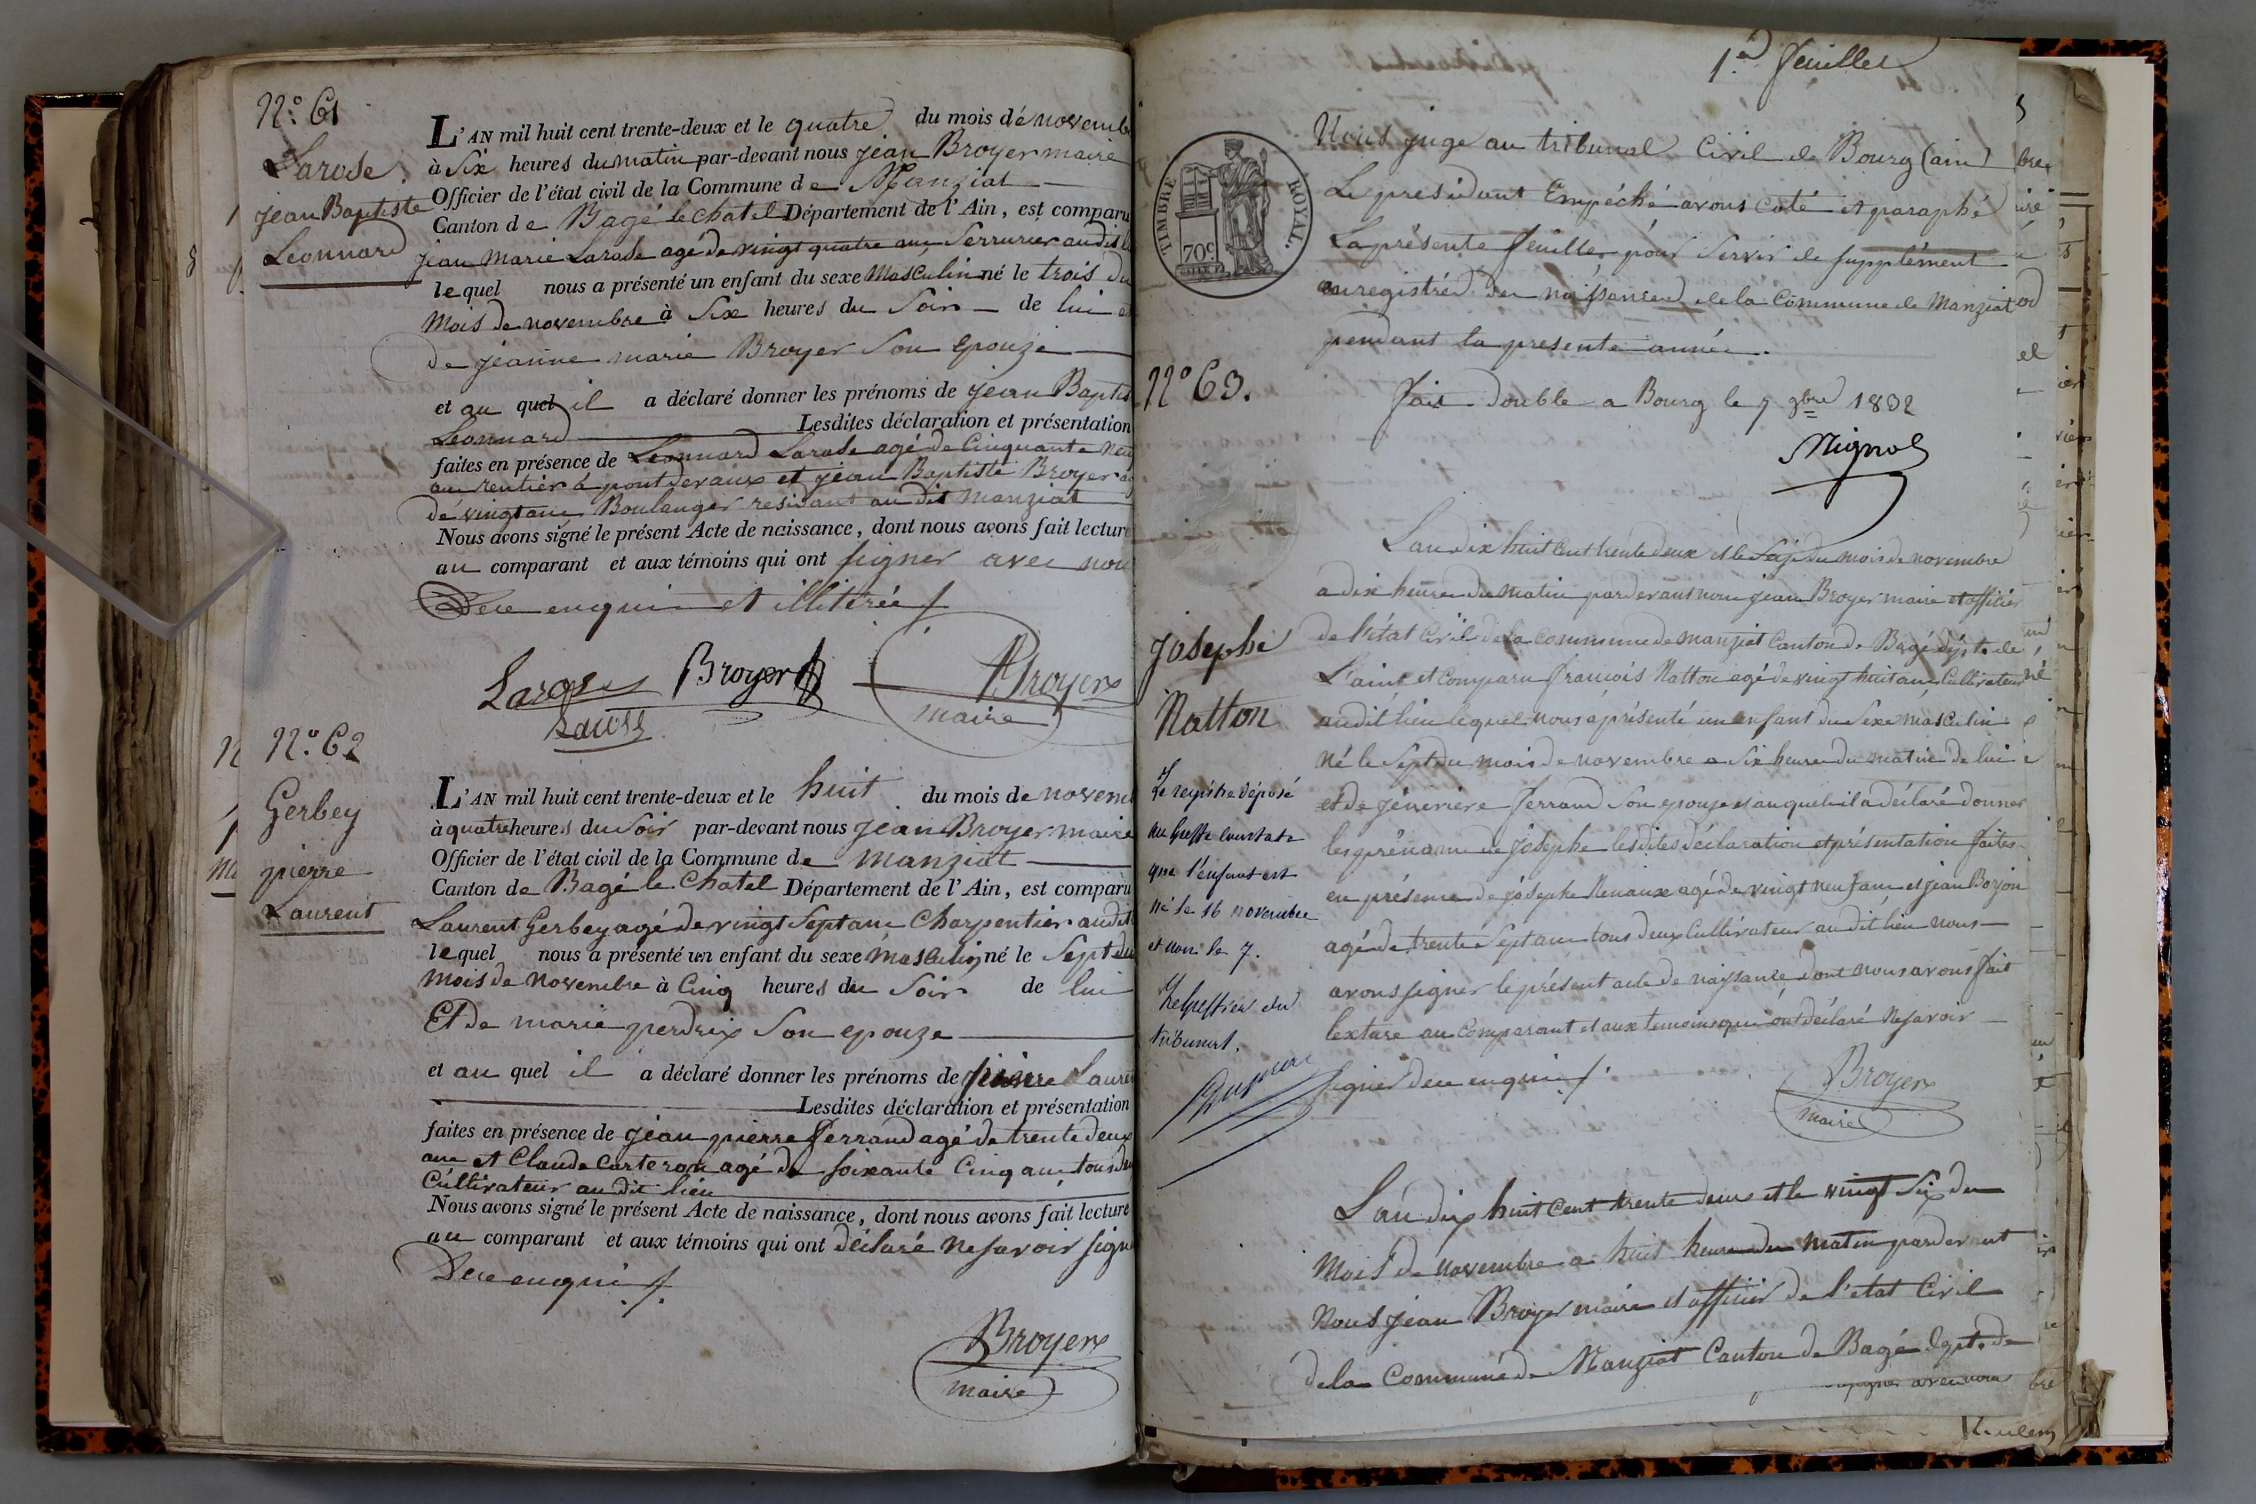 N.° 61
Larose
jean Baptiste
Leonnard
L'AN mil huit cent trente-deux et le quatre du mois de novemb
à Six heures du matin par-devant nous jean Broyer maire
Officier de l'état civil de la Commune de Manziat
Canton de Bagé le chatel Département de l'Ain, est comparu
jean Marie Larose agé de vingt quatre ans Serrurier audit
lequel nous a présenté un enfant du sexe Masculin né le trois du
Mois de novembre à Six heures du Soir de lui et
de jeanne marie Broyer Son epouze
et au quel il a déclaré donner les prénoms de jean Baptis
Leonnard Lesdites déclaration et présentation
faites en présence de Leonnard Larose agé de Cinquante neu
ans rentier à pont devaux et jean Baptiste Broyer ag
de vingt ans Boulanger residant au dit manziat
Nous avons signé le présent Acte de naissance, dont nous avons fait lecture
au comparant et aux témoins qui ont signer avec nou
Dece enquie et illiterée
Larose Broyer Broyer
maire
Larose
N.° 62
Gerbey
pierre
Laurent
L'AN mil huit cent trente-deux et le huit du mois de novem
à quatre heures du Soir par-devant nous jean Broyer maire
Officier de l'état civil de la Commune de manziat
Canton de Bagé le Chatel Département de l'Ain, est comparu
Laurent Gerbey agé de vingt Sept ans Charpentier audit
lequel nous a présenté un enfant du sexe masculin né le Sept du
mois de Novembre à Cinq heures du Soir de lui
Et de marie perdrix Son epouze
et au quel il a déclaré donner les prénoms de pierre Lauren
Lesdites déclaration et présentation
faites en présence de jean pierre ferrand agé de trente deux
ans et Claude Carteron agé de Soixante Cinq ans tous deu
Cultivateur au dit lieu
Nous avons signé le présent Acte de naissance, dont nous avons fait lecture
au comparant et aux témoins qui ont déclaré ne savoir signe
Dece enquie
Broyer
maire
1.re feuille
TIMBRE ROYAL.
70c.
Nous juge au tribunal Civil de Bourg (ain)
Le president Empéché avons coté et paraphé
La présente feuille pour Servir de Supplément
au registre de naissance de la Commune de Manziat
pendant la presente année.
fait double a Bourg le 7 9bre 1832
Mignol
N° 63.
josephe
Natton
Le registre déposé
au Greffe constate
que l'enfant est
né le 16 novembre
et non le 7.
Le Greffier du
tribunal.
L'an dix huit Cent trente deux et le du mois de novembre
a dix heure du matin par devant nous jean Broyer maire et officier
de l'état Civil de la Commune de manziat Canton de Bagé dépt. de
L'ain et Comparu francois Natton agé de vingt huit ans Cultivateur
au dit lieu lequel nous a présenté un enfant du Sexe masculin
né le Sept du mois de novembre a Six heure du matin de lui
et de jénevieve ferrand Son epouze et au quel il a déclaré donner
les prénoms de josephe lesdites déclaration et présentation faites
en présence de josephe Renaux agé de vingt neuf ans et jean Boyon
agé de trente Sept ans tous deux Cultivateur au dit lieu nous
avons signer le présent acte de naissance dont nous avons fait
lexture au Comparant et aux temoins qui ont déclaré ne savoir
signer dece enquie
Broyer
maire
L'an dix huit Cent trente deux et le vingt Six du
Mois de novembre a huit heure du matin pardevant
Nous jean Broyer maire et officier de l'état Civil
de la Commune de Manziat Canton de Bagé Dept. de